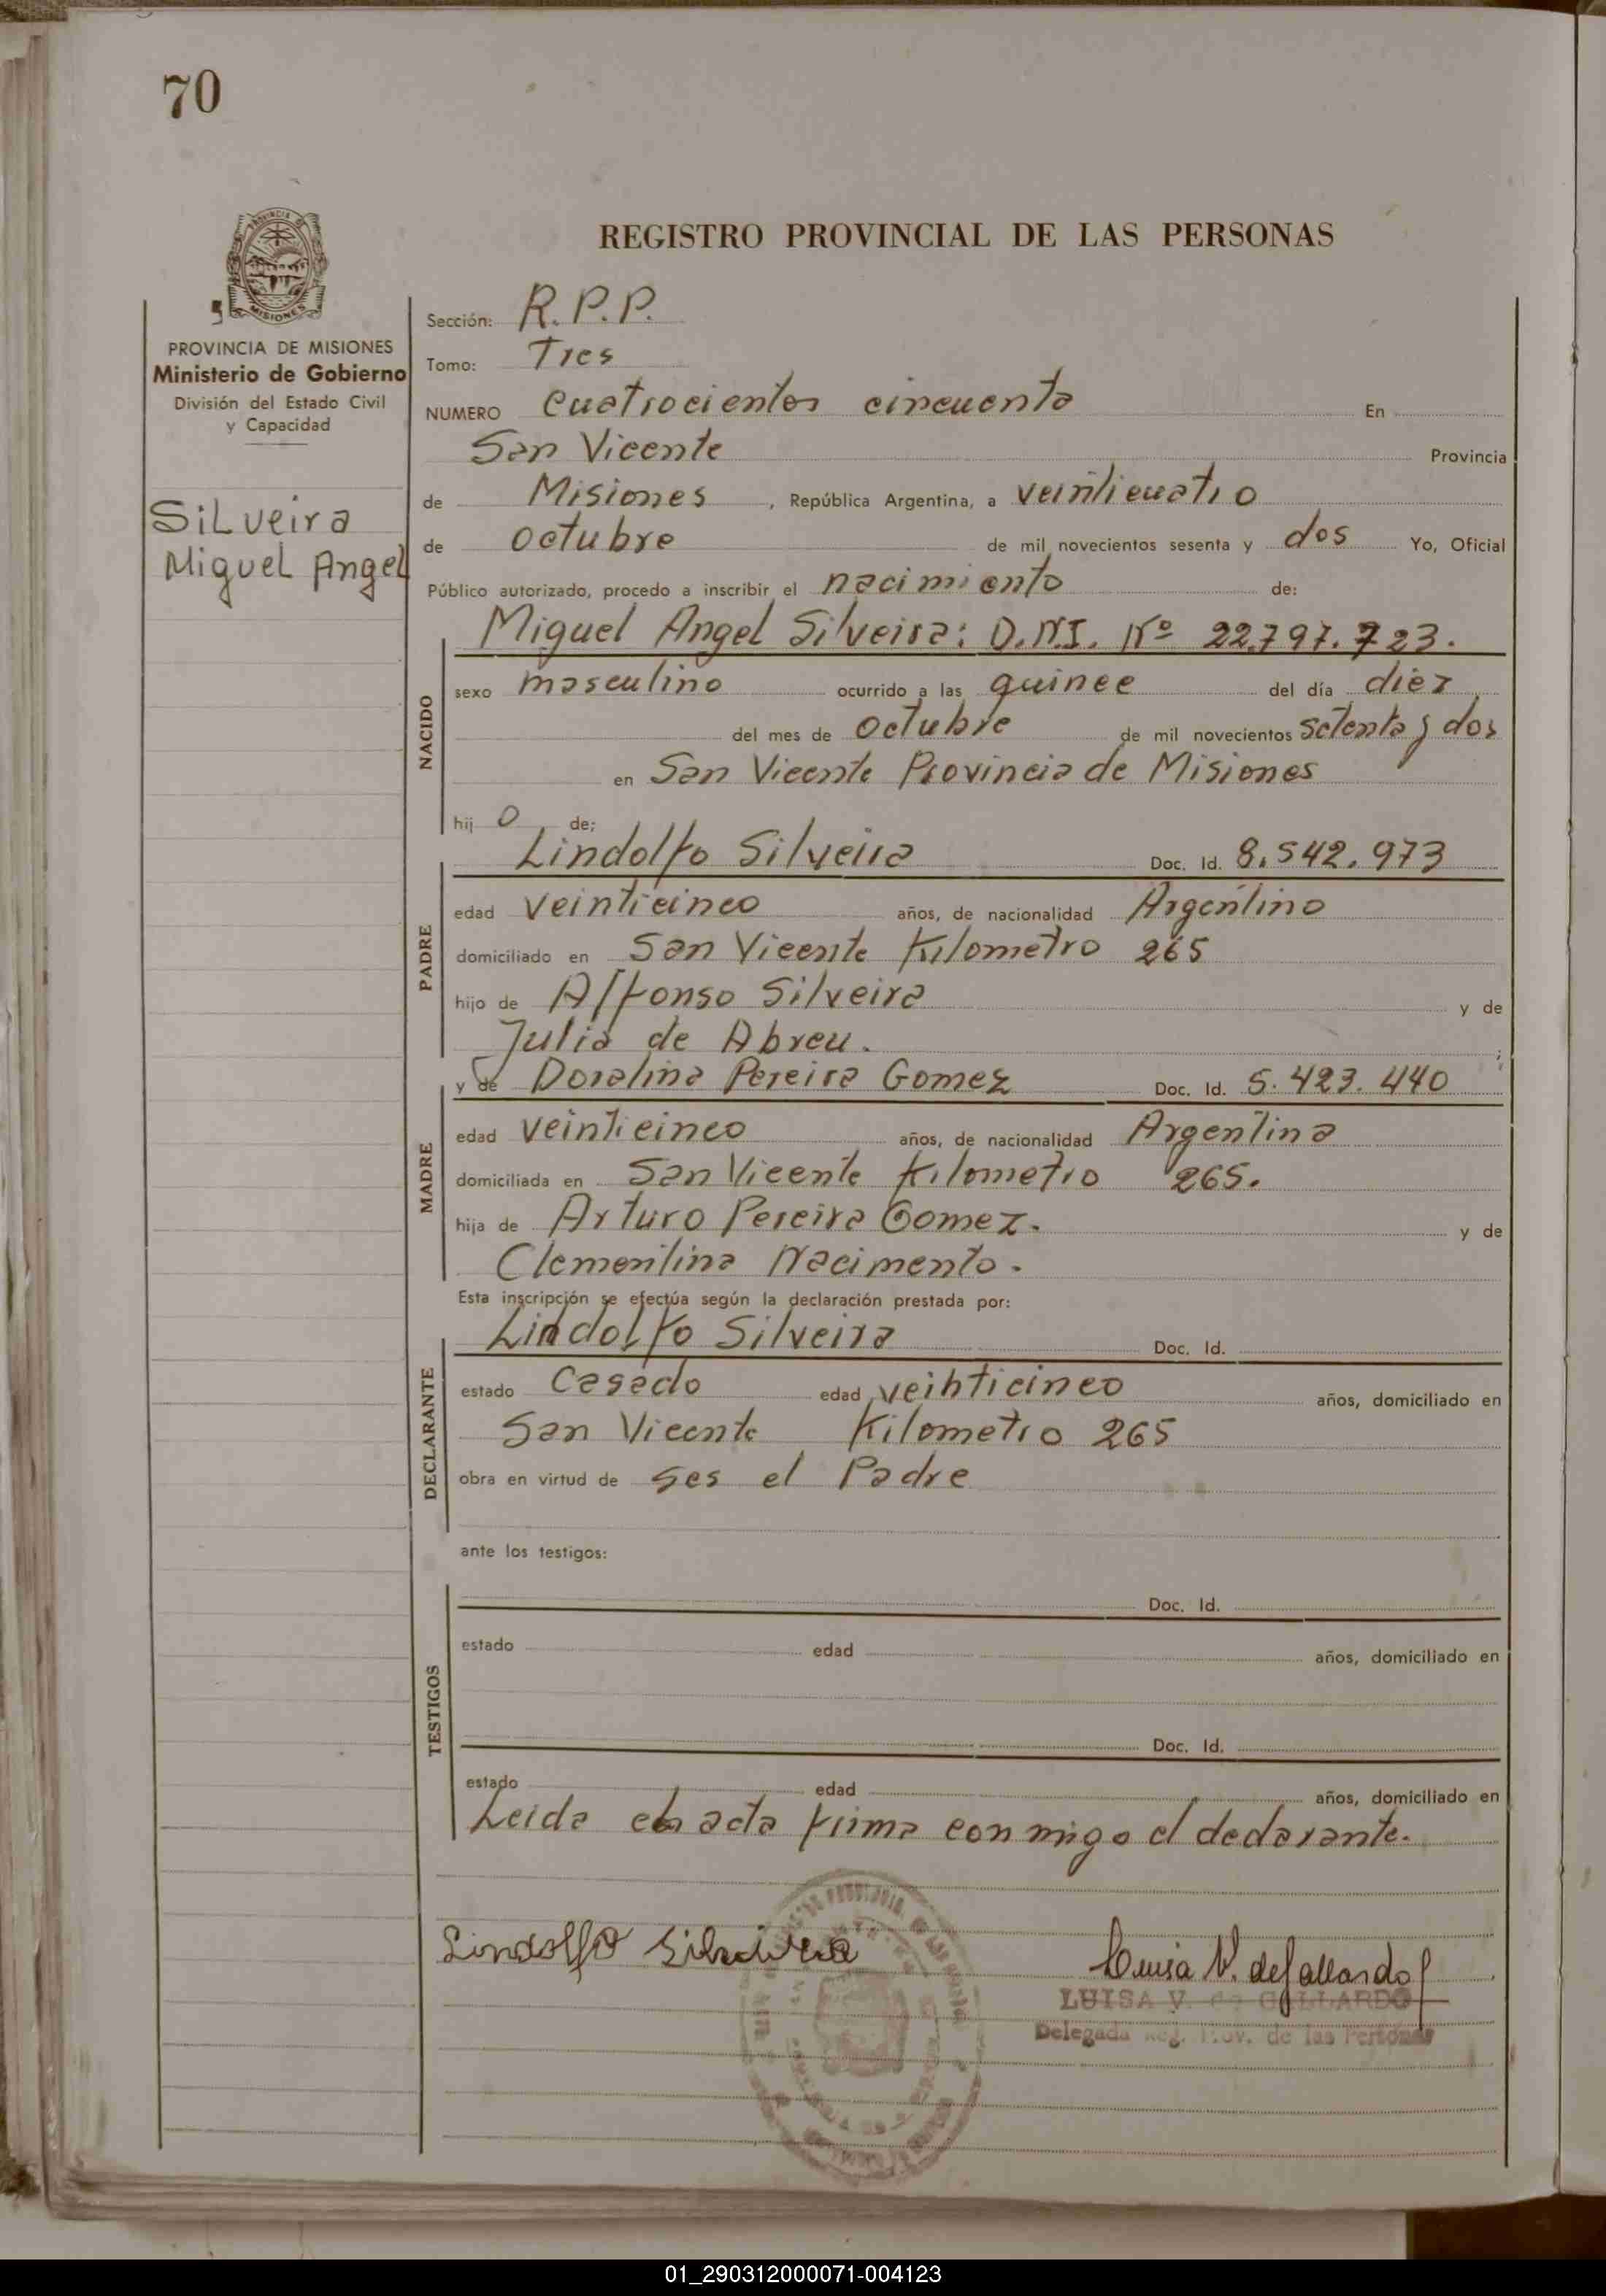 70
REGISTRO PROVINCIAL DE LAS PERSONAS
MISIONES
PROVINCIA DE MISIONES
Ministerio de Gobierno
División del Estado Civil
y Capacidad
Silveira
Miguel Angel
Sección: R.P.P.
Tomo: Tres
NUMERO Cuatrocientos cincuenta En
San Vicente Provincia
de Misiones, República Argentina, a veinticuatro
de octubre de mil novecientos sesenta y dos Yo, Oficial
Público autorizado, procedo a inscribir el nacimiento de:
Miguel Angel Silveira: D.N.I. Nº 22.797.723.
NACIDO
sexo masculino ocurrido a las quince del día diez
del mes de octubre de mil novecientos setenta y dos
en San Vicente Provincia de Misiones
hij o de;
Lindolfo Silveira Doc. Id. 8.542.973
PADRE
edad veinticinco años, de nacionalidad Argentino
domiciliado en San Vicente Kilometro 265
hijo de Alfonso Silveira y de
Julia de Abreu. ;
y de Doralina Pereira Gomez Doc. Id. 5.423.440
MADRE
edad veinticinco años, de nacionalidad Argentina
domiciliada en San Vicente Kilometro 265.
hija de Arturo Pereira Gomez. y de
Clementina Nacimento.
Esta inscripción se efectúa según la declaración prestada por:
Lindolfo Silveira Doc. Id.
DECLARANTE
estado Casado edad veinticinco años, domiciliado en
San Vicente Kilometro 265
obra en virtud de ses el Padre
ante los testigos:
Doc. Id.
TESTIGOS
estado edad años, domiciliado en
Doc. Id.
estado edad años, domiciliado en
Leida el acta firma conmigo el declarante.
Lindolfo Silveira
Luisa V. de Gallardo
LUISA V. de GALLARDO
Delegada Reg. Prov. de las Personas
01_290312000071-004123